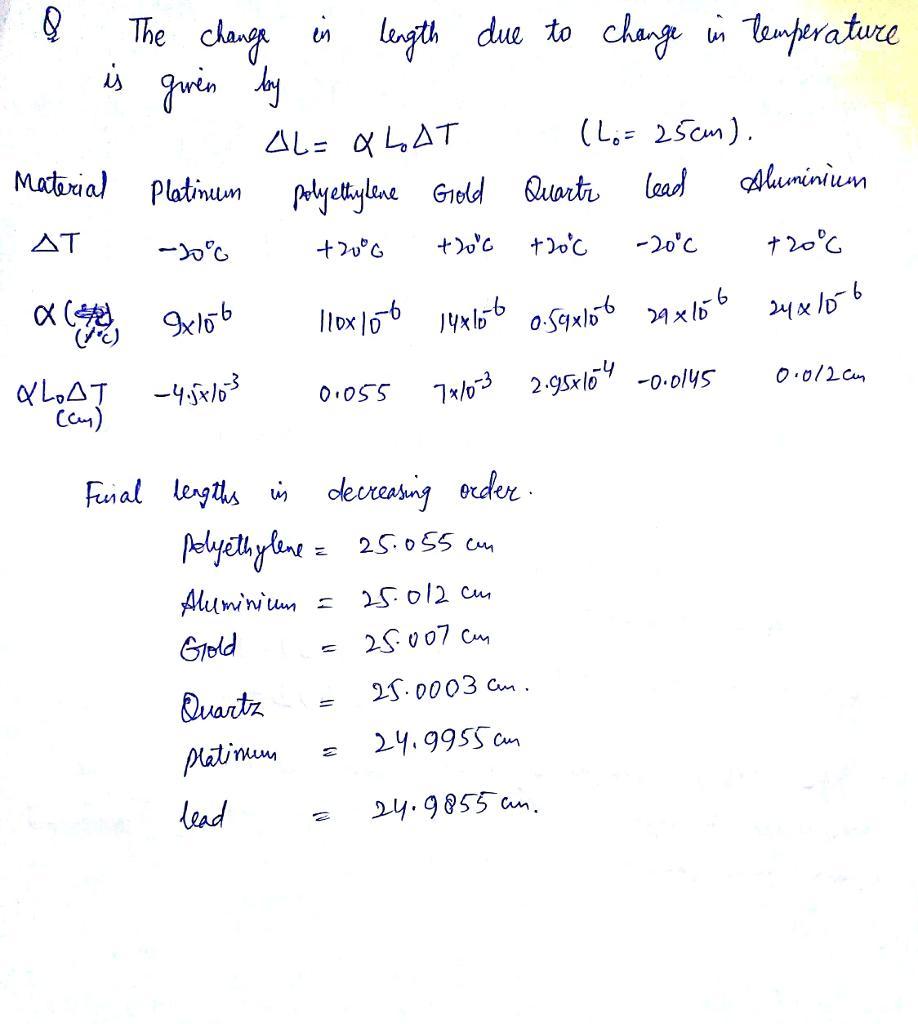 Q The change in length due to change in temperature
is given by
ΔL = α L₀ ΔT (L₀ = 25cm).
Material Platinum polyethylene Gold Quartz lead Aluminium
ΔT -20°C +20°C +20°C +20°C -20°C +20°C
α (1/°C) 9x10⁻⁶ 110x10⁻⁶ 14x10⁻⁶ 0.59x10⁻⁶ 29x10⁻⁶ 24x10⁻⁶
αL₀ΔT -4.5x10⁻³ 0.055 7x10⁻³ 2.95x10⁻⁴ -0.0145 0.012cm
(cm)
Final lengths in decreasing order.
Polyethylene = 25.055 cm
Aluminium = 25.012 cm
Gold = 25.007 cm
Quartz = 25.0003 cm.
platinum = 24.9955 cm
lead = 24.9855 cm.